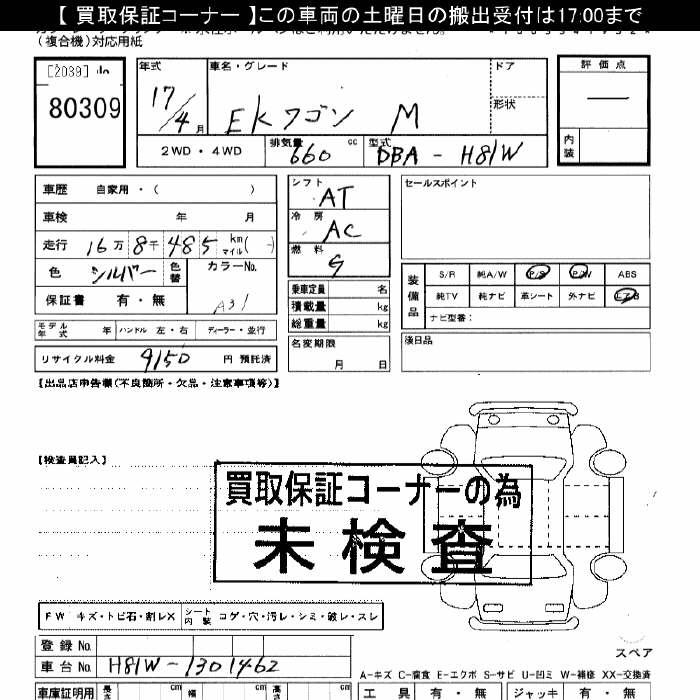 【 買取保証コーナー 】この車両の土曜日の搬出受付は17:00まで
(複合機)対応用紙
[2039]
80309
年式
17/4 月
車名・グレード
EKワゴン M
ドア
形状
2WD・4WD
排気量 660 cc
型式 DBA - H81W
評価点
—
内装
車歴 自家用・( )
車検 年 月
走行 16万 8千 485 km マイル( - )
色 シルバー 色替
カラーNo. A31
保証書 有・無
モデル年式 年 ハンドル 左・右 ディーラー・並行
リサイクル料金 9150 円 預託済
シフト AT
冷房 AC
燃料 G
乗車定員 名
積載量 kg
総重量 kg
名変期限
月 日
セールスポイント
装備品
S/R 純A/W P/S P/W ABS
純TV 純ナビ 革シート 外ナビ エアB
ナビ型番:
後日品
【出品店申告欄(不良箇所・欠品・注意事項等)】
【検査員記入】
買取保証コーナーの為
未検査
FW キズ・トビ石・割レX シート内装 コゲ・穴・汚レ・シミ・破レ・スレ
登録 No.
車台 No. H81W-1301462
スペア
A-キズ C-腐食 E-エクボ S-サビ U-凹ミ W-補修 XX-交換済
車庫証明用 長さ cm 幅 cm 高さ cm
工具 有・無 ジャッキ 有・無